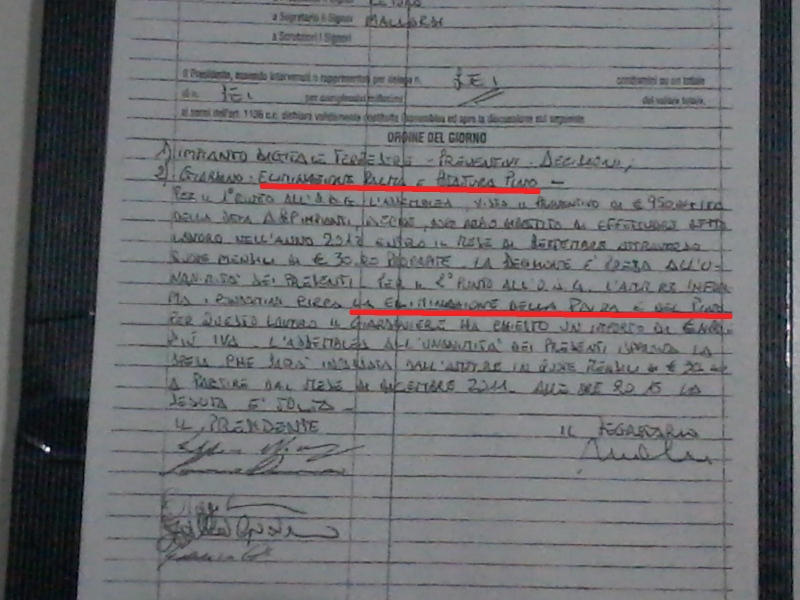 a Segretario il Signor MALLARDI
a Scrutatori i Signori
Il Presidente, essendo intervenuti o rappresentati per delega n. SEI condomini su un totale
di n. SEI per complessivi millesimi del valore totale,
ai sensi dell'art. 1136 c.c. dichiara validamente costituita l'assemblea ed apre la discussione sul seguente
ORDINE DEL GIORNO
1) IMPIANTO DIGITALE TERRESTRE - PREVENTIVI - DECISIONI;
2) GIARDINO - ELIMINAZIONE PALMA E PINO -
PER IL 1° PUNTO ALL'O.D.G. L'ASSEMBLEA, VISTO IL PREVENTIVO DI € 950
DELLA DITTA DECIDE, DI EFFETTUARE DETTO
LAVORO NELL'ANNO 2012 ENTRO IL MESE DI SETTEMBRE ATTRAVERSO
QUOTE MENSILI DI € 30,00 PROCAPITE. LA DECISIONE E' PRESA ALL'U-
NANIMITA' DEI PRESENTI. PER IL 2° PUNTO ALL'O.D.G. L'AMM.RE INFOR-
MA I CONDOMINI CIRCA LA ELIMINAZIONE DELLA PALMA E DEL PINO
PER QUESTO LAVORO IL GIARDINIERE HA CHIESTO UN IMPORTO DI €
PIÙ IVA. L'ASSEMBLEA ALL'UNANIMITA' DEI PRESENTI APPROVA LA
SPESA CHE SARÀ INCASSATA DALL'AMM.RE IN QUOTE MENSILI DI €
A PARTIRE DAL MESE DI DICEMBRE 2011. ALLE ORE 20.15 LA
SEDUTA E' SCIOLTA -
IL PRESIDENTE IL SEGRETARIO